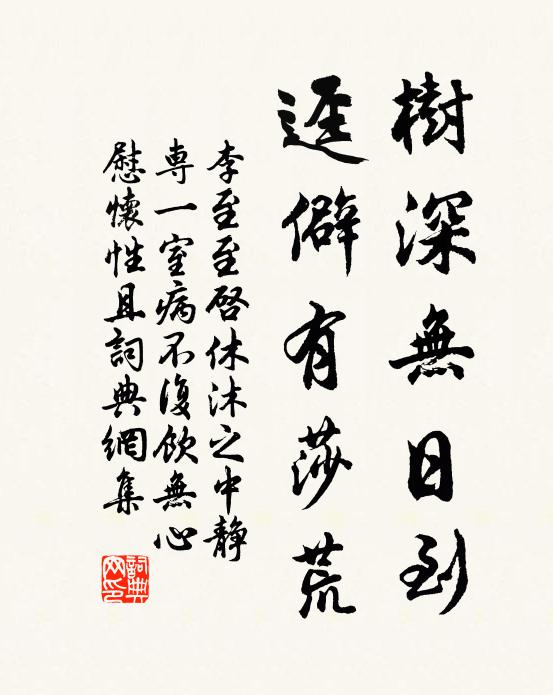 樹深無日到
逕僻有莎荒
李至至啓休沐之中靜
専一室病不復飲無心
慰懷性且詞典網集
詞典网印